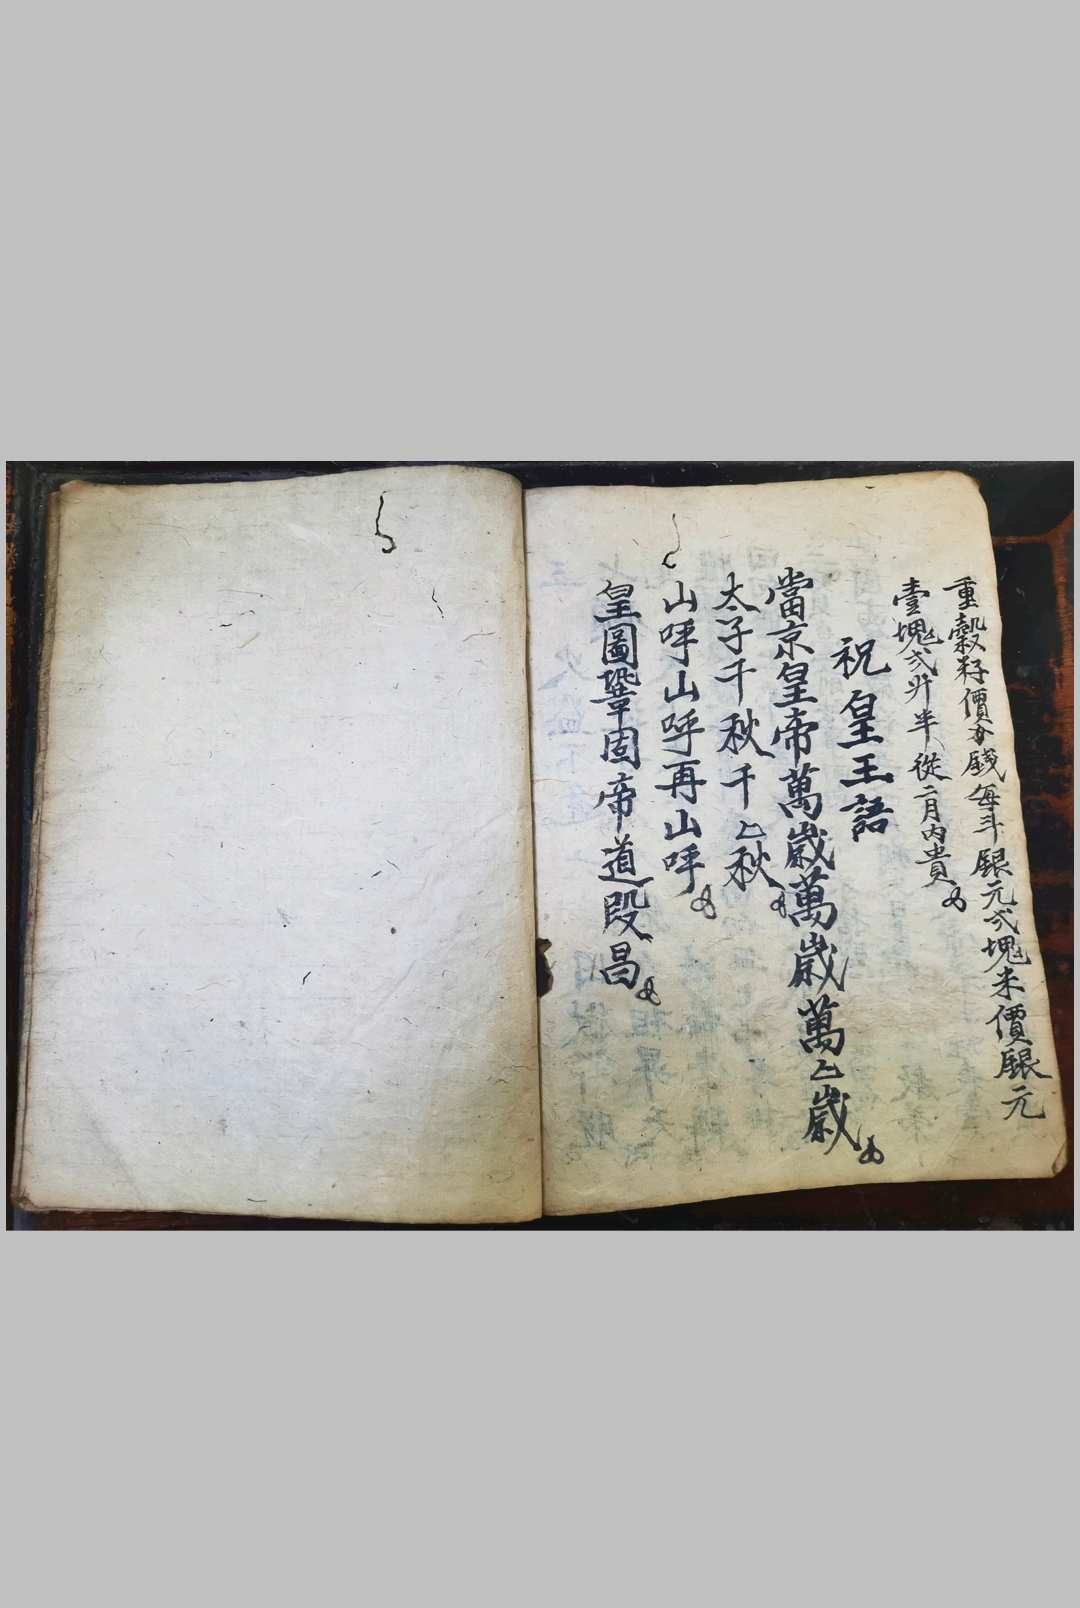 重穀籽價分錢每斗銀元弍塊米價銀元
壹塊弍升半從二月內貴
祝皇王語
當京皇帝萬歲萬歲萬〻歲
太子千秋千〻秋
山呼山呼再山呼
皇圖鞏固帝道段昌